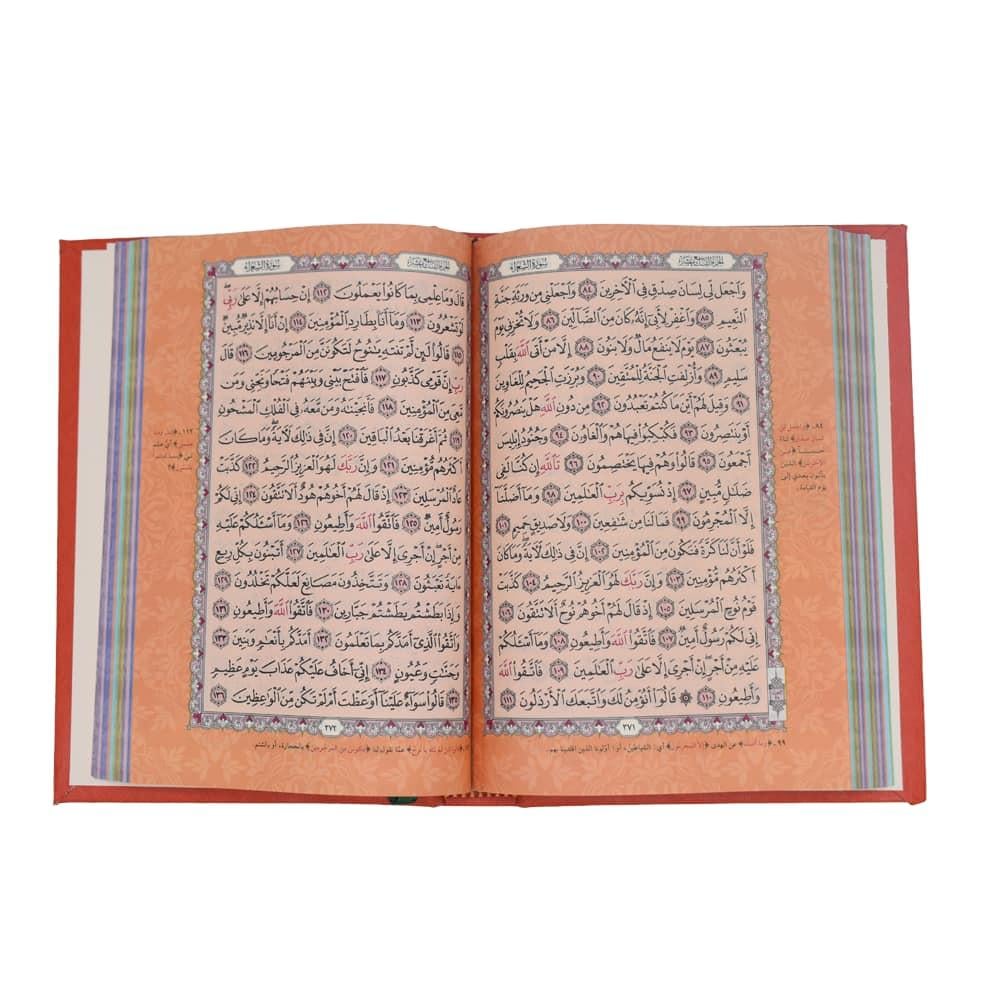 الجزء التاسع عشر سورة الشعراء
وَاجْعَل لِّي لِسَانَ صِدْقٍ فِي الْآخِرِينَ ٨٤ وَاجْعَلْنِي مِن وَرَثَةِ جَنَّةِ
النَّعِيمِ ٨٥ وَاغْفِرْ لِأَبِي إِنَّهُ كَانَ مِنَ الضَّالِّينَ ٨٦ وَلَا تُخْزِنِي يَوْمَ
يُبْعَثُونَ ٨٧ يَوْمَ لَا يَنفَعُ مَالٌ وَلَا بَنُونَ ٨٨ إِلَّا مَنْ أَتَى اللَّهَ بِقَلْبٍ
سَلِيمٍ ٨٩ وَأُزْلِفَتِ الْجَنَّةُ لِلْمُتَّقِينَ ٩٠ وَبُرِّزَتِ الْجَحِيمُ لِلْغَاوِينَ
٩١ وَقِيلَ لَهُمْ أَيْنَ مَا كُنتُمْ تَعْبُدُونَ ٩٢ مِن دُونِ اللَّهِ هَلْ يَنصُرُونَكُمْ
أَوْ يَنتَصِرُونَ ٩٣ فَكُبْكِبُوا فِيهَا هُمْ وَالْغَاوُونَ ٩٤ وَجُنُودُ إِبْلِيسَ
أَجْمَعُونَ ٩٥ قَالُوا وَهُمْ فِيهَا يَخْتَصِمُونَ ٩٦ تَاللَّهِ إِن كُنَّا لَفِي
ضَلَالٍ مُّبِينٍ ٩٧ إِذْ نُسَوِّيكُم بِرَبِّ الْعَالَمِينَ ٩٨ وَمَا أَضَلَّنَا
إِلَّا الْمُجْرِمُونَ ٩٩ فَمَا لَنَا مِن شَافِعِينَ ١٠٠ وَلَا صَدِيقٍ حَمِيمٍ ١٠١
فَلَوْ أَنَّ لَنَا كَرَّةً فَنَكُونَ مِنَ الْمُؤْمِنِينَ ١٠٢ إِنَّ فِي ذَٰلِكَ لَآيَةً وَمَا كَانَ
أَكْثَرُهُم مُّؤْمِنِينَ ١٠٣ وَإِنَّ رَبَّكَ لَهُوَ الْعَزِيزُ الرَّحِيمُ ١٠٤ كَذَّبَتْ
قَوْمُ نُوحٍ الْمُرْسَلِينَ ١٠٥ إِذْ قَالَ لَهُمْ أَخُوهُمْ نُوحٌ أَلَا تَتَّقُونَ ١٠٦
إِنِّي لَكُمْ رَسُولٌ أَمِينٌ ١٠٧ فَاتَّقُوا اللَّهَ وَأَطِيعُونِ ١٠٨ وَمَا أَسْأَلُكُمْ
عَلَيْهِ مِنْ أَجْرٍ إِنْ أَجْرِيَ إِلَّا عَلَىٰ رَبِّ الْعَالَمِينَ ١٠٩ فَاتَّقُوا اللَّهَ
وَأَطِيعُونِ ١١٠ ۞ قَالُوا أَنُؤْمِنُ لَكَ وَاتَّبَعَكَ الْأَرْذَلُونَ ١١١
٣٧١
٨٤ـ ﴿واجعل لي
لسان صدق﴾ ثناءً
حسناً ﴿في
الآخرين﴾ الذين
يأتون بعدي إلى
يوم القيامة.
٩٩ـ ﴿وما أضلنا﴾ عن الهدى ﴿إلا المجرمون﴾ أي: الشياطين، أو: أوّلونا الذين اقتدينا بهم.
الجزء التاسع عشر سورة الشعراء
قَالَ وَمَا عِلْمِي بِمَا كَانُوا يَعْمَلُونَ ١١٢ إِنْ حِسَابُهُمْ إِلَّا عَلَىٰ رَبِّي
لَوْ تَشْعُرُونَ ١١٣ وَمَا أَنَا بِطَارِدِ الْمُؤْمِنِينَ ١١٤ إِنْ أَنَا إِلَّا نَذِيرٌ مُّبِينٌ
١١٥ قَالُوا لَئِن لَّمْ تَنتَهِ يَا نُوحُ لَتَكُونَنَّ مِنَ الْمَرْجُومِينَ ١١٦ قَالَ
رَبِّ إِنَّ قَوْمِي كَذَّبُونِ ١١٧ فَافْتَحْ بَيْنِي وَبَيْنَهُمْ فَتْحًا وَنَجِّنِي وَمَن
مَّعِيَ مِنَ الْمُؤْمِنِينَ ١١٨ فَأَنجَيْنَاهُ وَمَن مَّعَهُ فِي الْفُلْكِ الْمَشْحُونِ
١١٩ ثُمَّ أَغْرَقْنَا بَعْدُ الْبَاقِينَ ١٢٠ إِنَّ فِي ذَٰلِكَ لَآيَةً وَمَا كَانَ
أَكْثَرُهُم مُّؤْمِنِينَ ١٢١ وَإِنَّ رَبَّكَ لَهُوَ الْعَزِيزُ الرَّحِيمُ ١٢٢ كَذَّبَتْ
عَادٌ الْمُرْسَلِينَ ١٢٣ إِذْ قَالَ لَهُمْ أَخُوهُمْ هُودٌ أَلَا تَتَّقُونَ ١٢٤ إِنِّي لَكُمْ
رَسُولٌ أَمِينٌ ١٢٥ فَاتَّقُوا اللَّهَ وَأَطِيعُونِ ١٢٦ وَمَا أَسْأَلُكُمْ عَلَيْهِ
مِنْ أَجْرٍ إِنْ أَجْرِيَ إِلَّا عَلَىٰ رَبِّ الْعَالَمِينَ ١٢٧ أَتَبْنُونَ بِكُلِّ رِيعٍ
آيَةً تَعْبَثُونَ ١٢٨ وَتَتَّخِذُونَ مَصَانِعَ لَعَلَّكُمْ تَخْلُدُونَ ١٢٩
وَإِذَا بَطَشْتُم بَطَشْتُمْ جَبَّارِينَ ١٣٠ فَاتَّقُوا اللَّهَ وَأَطِيعُونِ ١٣١
وَاتَّقُوا الَّذِي أَمَدَّكُم بِمَا تَعْلَمُونَ ١٣٢ أَمَدَّكُم بِأَنْعَامٍ وَبَنِينَ ١٣٣
وَجَنَّاتٍ وَعُيُونٍ ١٣٤ إِنِّي أَخَافُ عَلَيْكُمْ عَذَابَ يَوْمٍ عَظِيمٍ
١٣٥ قَالُوا سَوَاءٌ عَلَيْنَا أَوَعَظْتَ أَمْ لَمْ تَكُن مِّنَ الْوَاعِظِينَ ١٣٦
٣٧٢
١١٢ـ ﴿قال وما
علمي﴾ أي علم
لي
﴿قالوا لئن لم تنته يا نوح﴾ عمّا تقول لنا ﴿لتكونن من المرجومين﴾ بالحجارة، أو بالشتم.